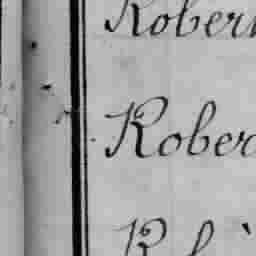 Robert
Rober